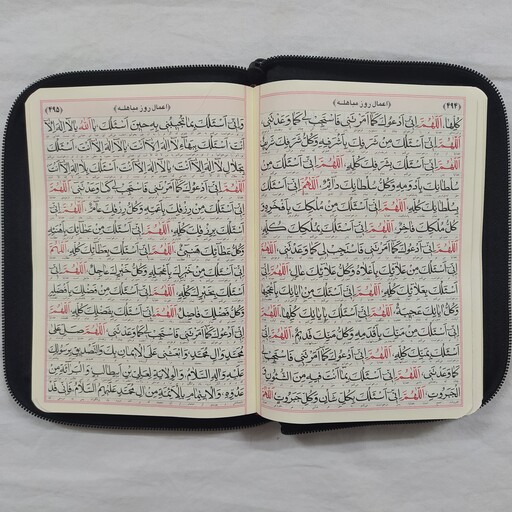 (۴۹۴) (اعمال روز مباهله)
كُلِّها اَللّٰهُمَّ اِنّی اَدْعُوكَ كَما اَمَرْتَنی فَاسْتَجِبْ لی كَما وَعَدْتَنی
اَللّٰهُمَّ اِنّی اَسْئَلُكَ مِنْ شَرَفِكَ بِاَشْرَفِهِ وَكُلُّ شَرَفِكَ شَریفٌ
اَللّٰهُمَّ اِنّی اَسْئَلُكَ بِشَرَفِكَ كُلِّهِ اَللّٰهُمَّ اِنّی اَسْئَلُكَ مِنْ
سُلْطانِكَ بِاَدْوَمِهِ وَكُلُّ سُلْطانِكَ دائِمٌ اَللّٰهُمَّ اِنّی اَسْئَلُكَ
بِسُلْطانِكَ كُلِّهِ اَللّٰهُمَّ اِنّی اَسْئَلُكَ مِنْ مُلْكِكَ بِاَفْخَرِهِ وَ
كُلُّ مُلْكِكَ فاخِرٌ اَللّٰهُمَّ اِنّی اَسْئَلُكَ بِمُلْكِكَ كُلِّهِ
اَللّٰهُمَّ اِنّی اَدْعُوكَ كَما اَمَرْتَنی فَاسْتَجِبْ لی كَما وَعَدْتَنی اَللّٰهُمَّ
اِنّی اَسْئَلُكَ مِنْ عَلائِكَ بِاَعْلاهُ وَكُلُّ عَلائِكَ عالٍ اَللّٰهُمَّ اِنّی
اَسْئَلُكَ بِعَلائِكَ كُلِّهِ اَللّٰهُمَّ اِنّی اَسْئَلُكَ مِنْ ایاتِكَ بِاَعْجَبِها
وَكُلُّ ایاتِكَ عَجیبَةٌ اَللّٰهُمَّ اِنّی اَسْئَلُكَ بِایاتِكَ كُلِّها اَللّٰهُمَّ
اِنّی اَسْئَلُكَ مِنْ مَنِّكَ بِاَقْدَمِهِ وَكُلُّ مَنِّكَ قَدیمٌ اَللّٰهُمَّ اِنّی
اَسْئَلُكَ بِمَنِّكَ كُلِّهِ اَللّٰهُمَّ اِنّی اَدْعُوكَ كَما اَمَرْتَنی فَاسْتَجِبْ لی
كَما وَعَدْتَنی اَللّٰهُمَّ اِنّی اَسْئَلُكَ بِما اَنْتَ فیهِ مِنَ الشُّئُونِ وَ
الْجَبَرُوتِ اَللّٰهُمَّ اِنّی اَسْئَلُكَ بِكُلِّ شَاْنٍ وَكُلِّ جَبَرُوتٍ اَللّٰهُمَّ
(اعمال روز مباهله) (۴۹۵)
وَاِنّی اَسْئَلُكَ بِما تُجیبُنی بِهِ حینَ اَسْئَلُكَ یا اَللّٰهُ یا لا اِلٰهَ اِلاّ
اَنْتَ اَسْئَلُكَ بِبَهاءِ لا اِلٰهَ اِلاّ اَنْتَ یا لا اِلٰهَ اِلاّ اَنْتَ اَسْئَلُكَ
بِجَلالِ لا اِلٰهَ اِلاّ اَنْتَ یا لا اِلٰهَ اِلاّ اَنْتَ اَسْئَلُكَ بِلا اِلٰهَ اِلاّ اَنْتَ
اَللّٰهُمَّ اِنّی اَدْعُوكَ كَما اَمَرْتَنی فَاسْتَجِبْ لی كَما وَعَدْتَنی اَللّٰهُمَّ
اِنّی اَسْئَلُكَ مِنْ رِزْقِكَ بِاَعَمِّهِ وَكُلُّ رِزْقِكَ عامٌّ اَللّٰهُمَّ اِنّی
اَسْئَلُكَ بِرِزْقِكَ كُلِّهِ اَللّٰهُمَّ اِنّی اَسْئَلُكَ مِنْ عَطائِكَ بِاَهْنَئِهِ
وَكُلُّ عَطائِكَ هَنیئٌ اَللّٰهُمَّ اِنّی اَسْئَلُكَ بِعَطائِكَ كُلِّهِ اَللّٰهُمَّ
اِنّی اَسْئَلُكَ مِنْ خَیْرِكَ بِاَعْجَلِهِ وَكُلُّ خَیْرِكَ عاجِلٌ اَللّٰهُمَّ اِنّی
اَسْئَلُكَ بِخَیْرِكَ كُلِّهِ اَللّٰهُمَّ اِنّی اَسْئَلُكَ مِنْ فَضْلِكَ بِاَفْضَلِهِ
وَكُلُّ فَضْلِكَ فاضِلٌ اَللّٰهُمَّ اِنّی اَسْئَلُكَ بِفَضْلِكَ كُلِّهِ اَللّٰهُمَّ
اِنّی اَدْعُوكَ كَما اَمَرْتَنی فَاسْتَجِبْ لی كَما وَعَدْتَنی اَللّٰهُمَّ صَلِّ عَلی
مُحَمَّدٍ وَالِ مُحَمَّدٍ وَابْعَثْنی عَلَی الْاِیمانِ بِكَ وَالتَّصْدیقِ بِرَسُولِكَ
عَلَیْهِ وَالِهِ السَّلامُ وَالْوِلایَةِ لِعَلِیِّ بْنِ اَبیطالِبٍ وَالْبَرائَةِ مِنْ
عَدُوِّهِ وَالْاِیتِمامِ بِالْاَئِمَّةِ مِنْ الِ مُحَمَّدٍ عَلَیْهِمُ السَّلامُ فَاِنّی قَدْ